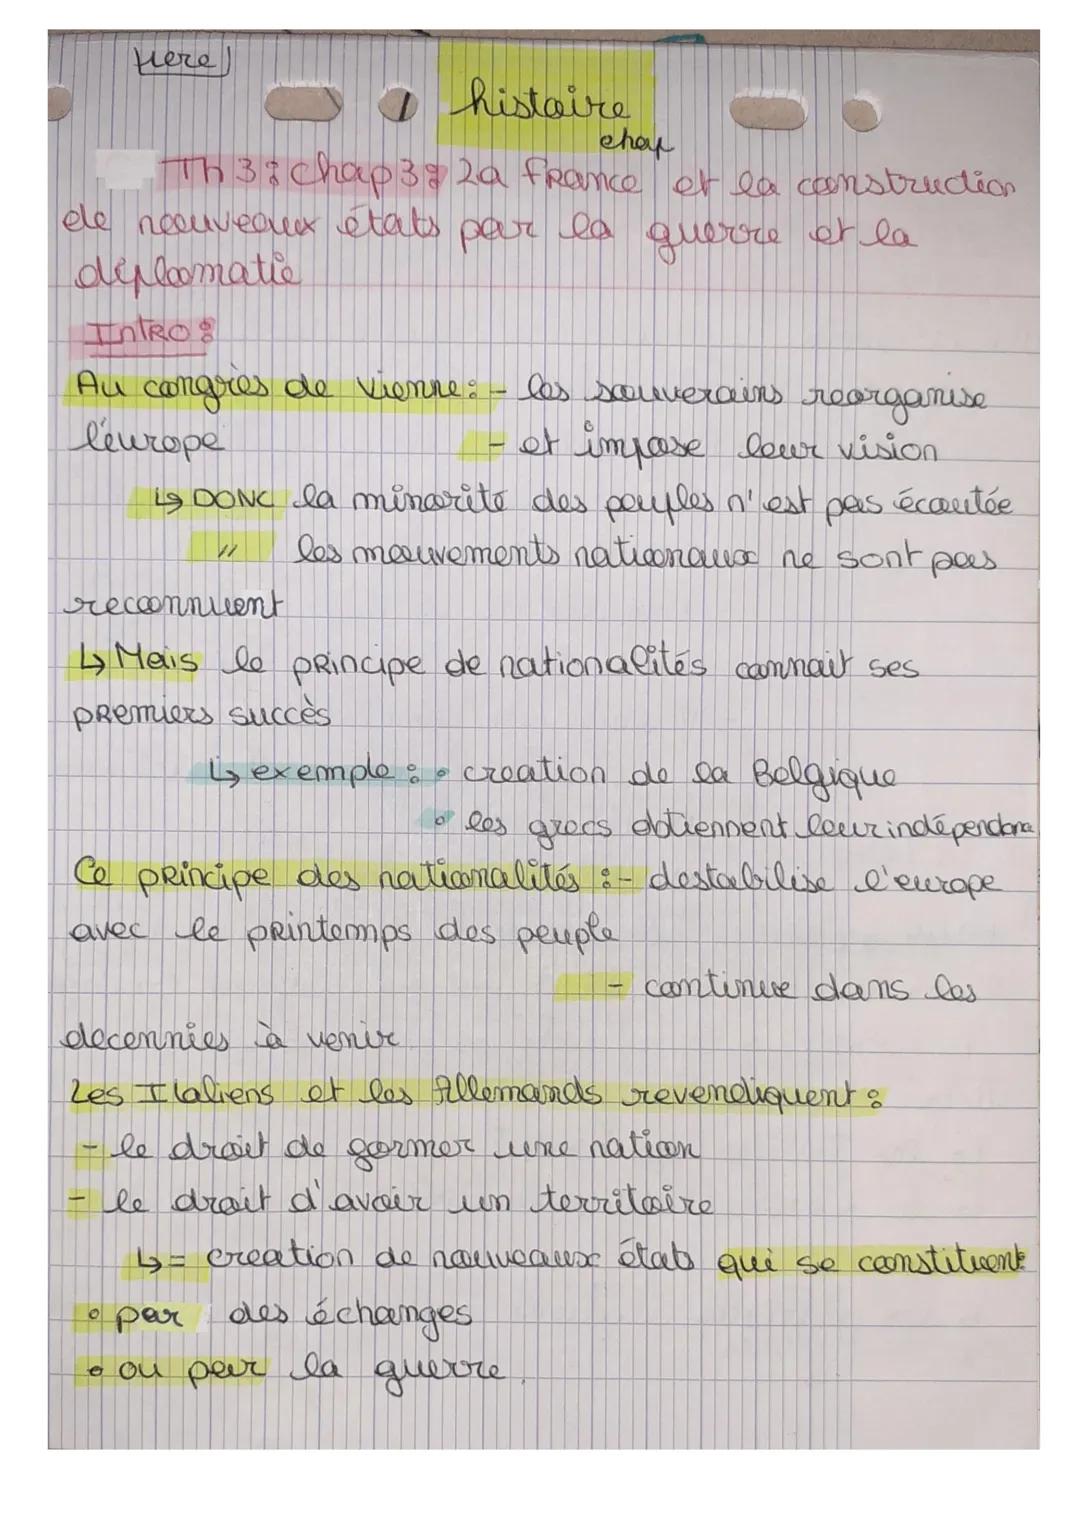 histoire
chap
Th 3 : chap 3 : La france et la construction
de nouveaux états par la guerre et la
diplomatie
Intro :
Au congrès de Vienne : - les souverains reorganise
l'europe - et impose leur vision
↳ DONC la minorité des peuples n'est pas écoutée
" les mouvements nationaux ne sont pas
reconnuent
↳ Mais le principe de nationalités connait ses
premiers succès
↳ exemple : • creation de la Belgique
• les grecs obtiennent leur indépendance
Ce principe des nationalités : - destabilise l'europe
avec le printemps des peuple
- continue dans les
decennies à venir
Les Italiens et les Allemands revendiquent :
- le droit de former une nation
- le droit d'avoir un territoire
↳ = creation de nouveaux états qui se constituent
• par des échanges
• ou par la guerre.